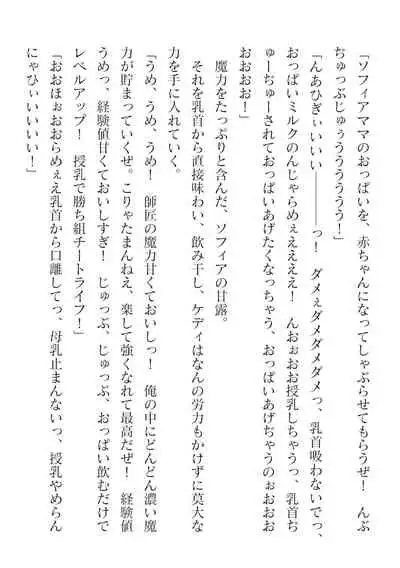 「ソフィアママのおっぱいを、赤ちゃんになってしゃぶらせてもらうぜ！　んぶ
ちゅっぷじゅぅうううううう！」
「んあひぎぃいいい――――っ！　ダメぇダメダメダメっ、乳首吸わないでっ、
おっぱいミルクのんじゃらめぇえええ！　んおぉおお授乳しちゃうっ、乳首ち
ゅーちゅーされておっぱいあげたくなっちゃう、おっぱいあげちゃうのぉおおお
おおおお！」
　魔力をたっぷりと含んだ、ソフィアの甘露。
　それを乳首から直接味わい、飲み干し、ケディはなんの労力もかけずに莫大な
力を手に入れていく。
「うめ、うめ、うめ！　師匠の魔力甘くておいしっ！　俺の中にどんどん濃い魔
力が貯まっていくぜ。こりゃたまんねえ、楽して強くなれて最高だぜ！　経験値
うめっ、経験値甘くておいしすぎ！　じゅっぷ、じゅっぷ、おっぱい飲むだけで
レベルアップ！　授乳で勝ち組チートライフ！」
「おおほぉおおらめぇえ乳首から口離してっ、母乳止まんないっ、授乳やめらん
にゃひぃいいいい！」